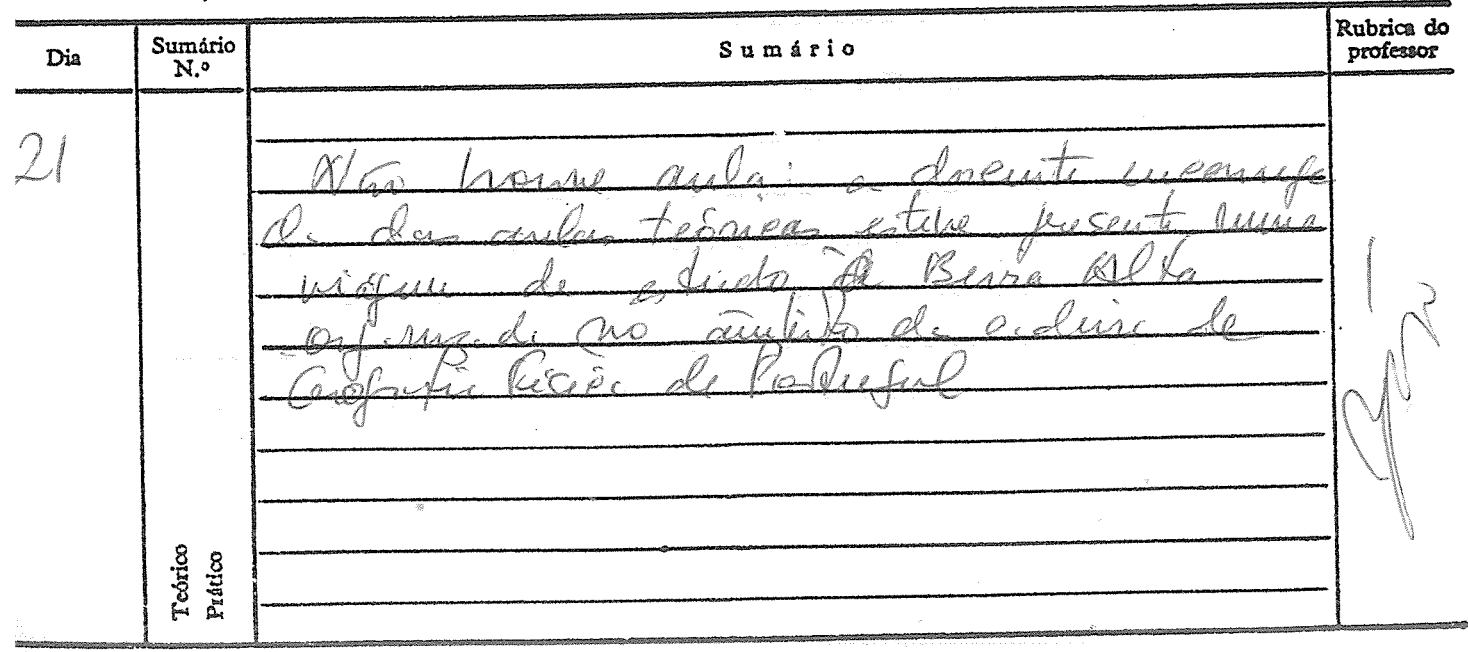 Dia
Sumário
N.º
Sumário
Rubrica do
professor
21
Não houve aula: a docente encarrega
da das aulas teóricas esteve presente numa
viagem de estudo à Beira Alta
organizada no âmbito da cadeira de
Geografia Física de Portugal
Teórico
Prático